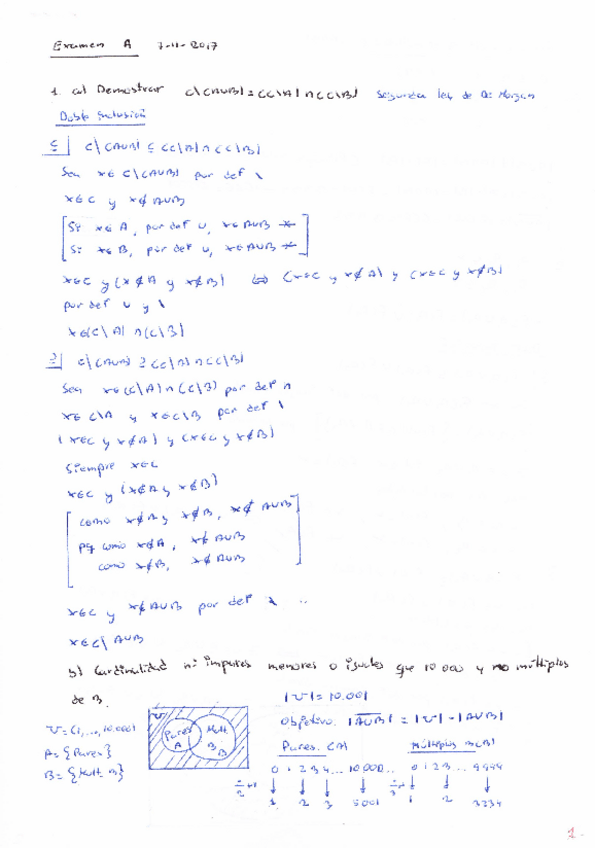 Examen A 7-11-2017
1. a) Demostrar C\(A∪B) = (C\A) ∩ (C\B) Segunda ley de De Morgan
Doble Inclusión
⊆ C\(A∪B) ⊆ (C\A) ∩ (C\B)
Sea x∈ C\(A∪B) por def \
x∈C y x∉ A∪B
Si x∈A, por def ∪, x∈A∪B
Si x∈B, por def ∪, x∈A∪B
x∈C y (x∉A y x∉B) ⇔ (x∈C y x∉A) y (x∈C y x∉B)
por def ∪ y \
x∈(C\A) ∩ (C\B)
⊇ C\(A∪B) ⊇ (C\A) ∩ (C\B)
Sea x∈(C\A) ∩ (C\B) por def ∩
x∈ C\A y x∈C\B por def \
(x∈C y x∉A) y (x∈C y x∉B)
Siempre x∈C
x∈C y (x∉A y x∉B)
como x∉A y x∉B, x∉ A∪B
pq como x∉A, x∉ A∪B
como x∉B, x∉ A∪B
x∈C y x∉A∪B por def \
x∈C\ A∪B
b) Cardinalidad ni impares menores o iguales que 10 000 y no múltiplos
de 3.
U = (1, ..., 10.000)
A = {Pares}
B = {Mult 3}
U
Pares
A
Mult
3
B
|U| = 10.001
Objetivo |A∪B| = |U| - |A∪B|
Pares (A) Múltiplos 3 (B)
0 1 2 3 4 ... 10,000 .. 0 1 2 3 .. 9999
1 2 3 5001 1 2 3334
1.